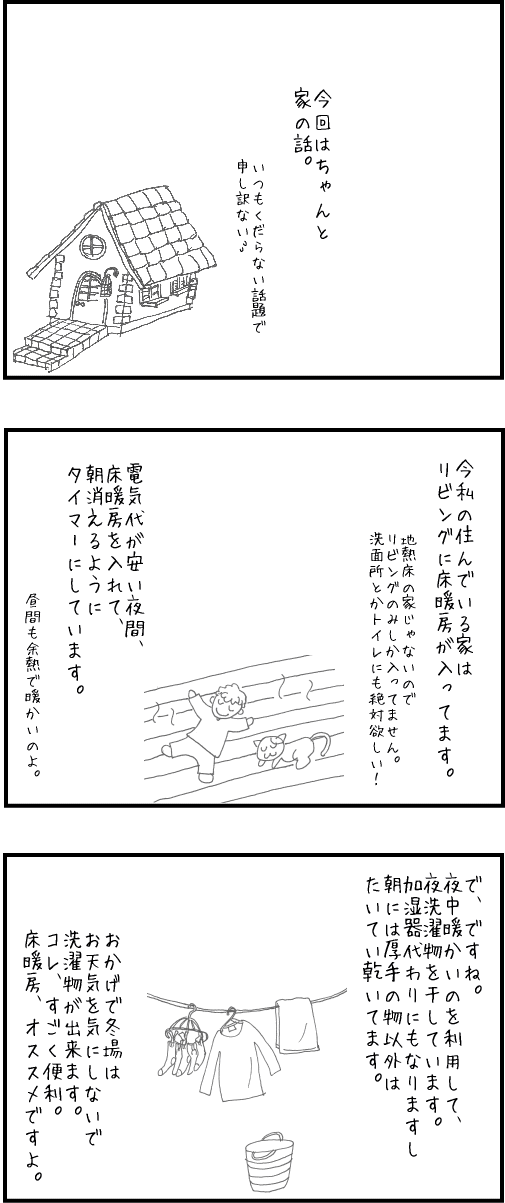 今回はちゃんと
家の話。
いつもくだらない話題で
申し訳ない。
今私の住んでいる家は
リビングに床暖房が入ってます。
地熱床の家じゃないので
リビングのみしか入ってません。
洗面所とかトイレにも絶対欲しい！
電気代が安い夜間、
床暖房を入れて、
朝消えるように
タイマーにしています。
昼間も余熱で暖かいのよ。
で、ですね。
夜中暖かいのを利用して、
夜洗濯物を干しています。
加湿器代わりにもなりますし
朝には厚手の物以外は
たいてい乾いてます。
おかげで冬場は
お天気を気にしないで
洗濯物が出来ます。
コレ、すごく便利。
床暖房、オススメですよ。